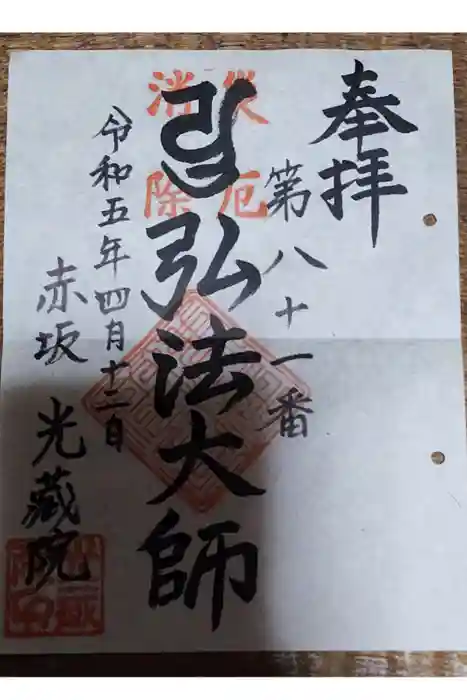 奉拝
第八十一番
災厄
消除
弘法大師
令和五年四月十二日
赤坂 光蔵院